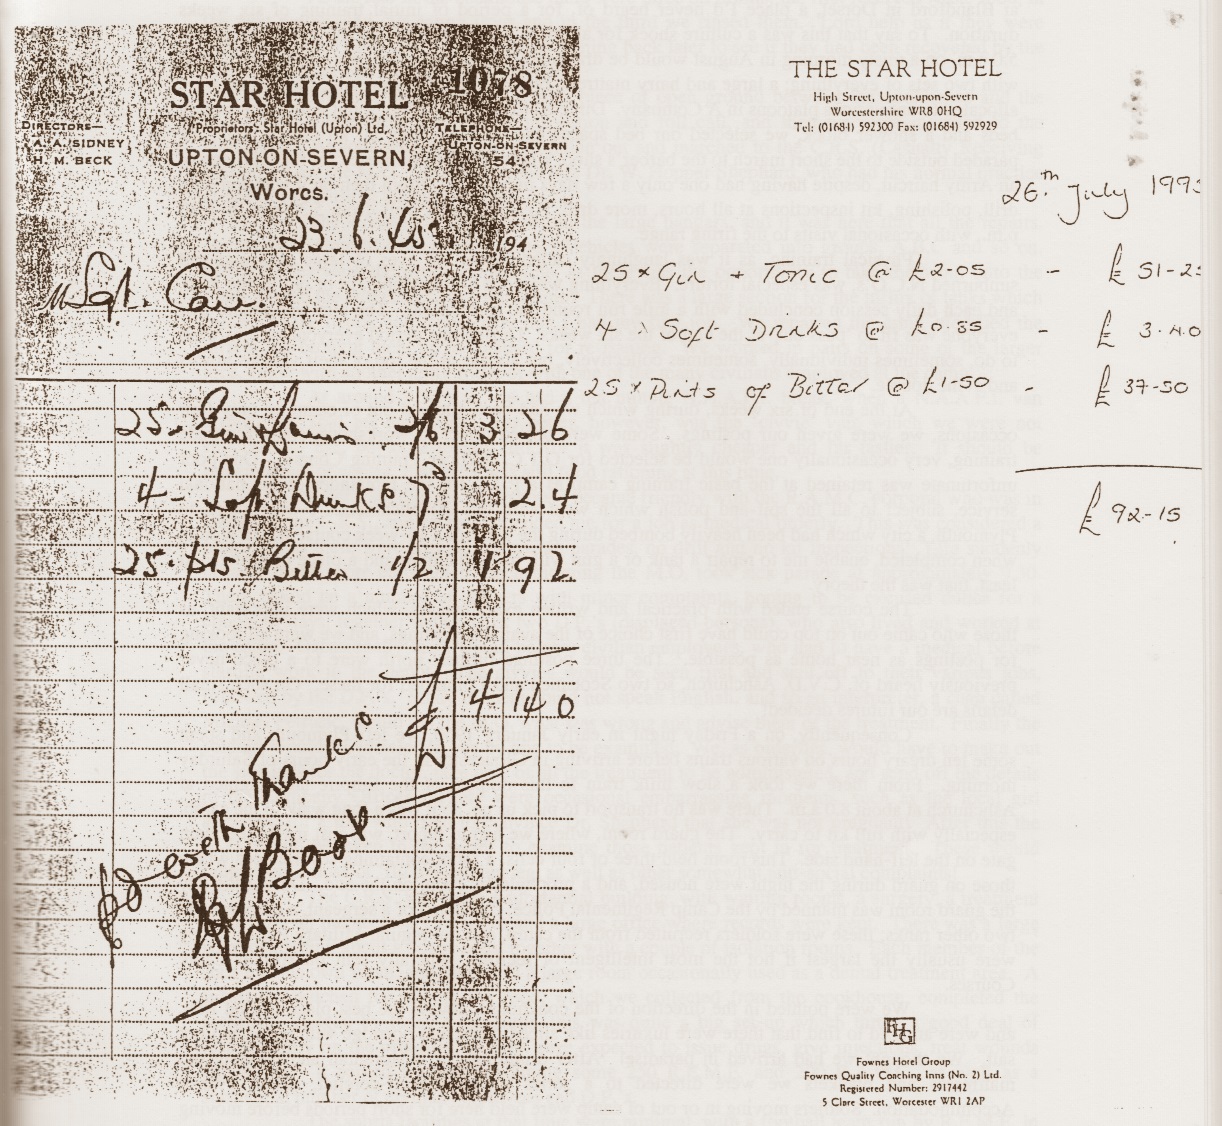 1078
STAR HOTEL
Proprietors: Star Hotel (Upton) Ltd.
DIRECTORS—
A. A. SIDNEY
H. M. BECK
TELEPHONE—
UPTON-ON-SEVERN
54.
UPTON-ON-SEVERN,
Worcs.
23.6.45 194
Sgt. Carr.
25. Gin 2/6 3 2 6
4 - Soft Drinks 7 2.4
25. pts. Bitter 1/2 1 9 2
4 14 0
Pd with Thanks
THE STAR HOTEL
High Street, Upton-upon-Severn
Worcestershire WR8 0HQ
Tel: (01684) 592300 Fax: (01684) 592929
26th July 199
25 x Gin + Tonic @ £2-05 - £ 51-2
4 Soft Drinks @ £0.85 - £ 3.40
25 x Pints of Bitter @ £1-50 - £ 37-50
£ 92-15
FHG
Fownes Hotel Group
Fownes Quality Coaching Inns (No. 2) Ltd.
Registered Number: 2917442
5 Clare Street, Worcester WR1 2AP